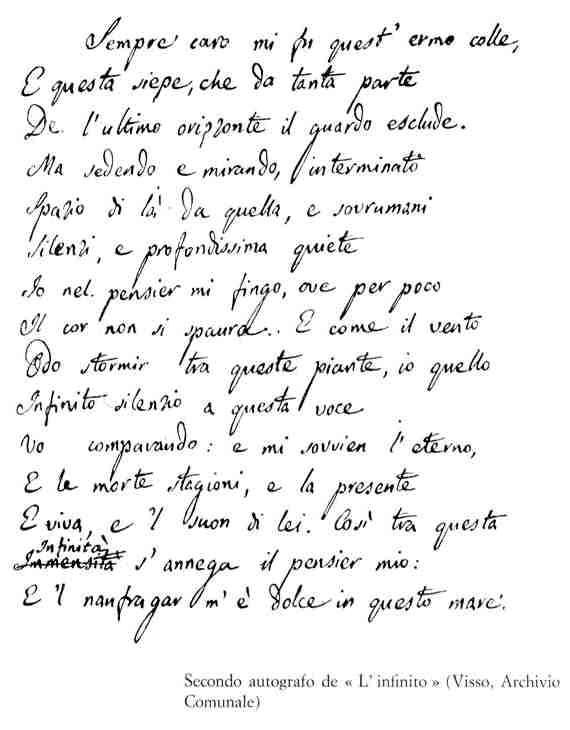 Sempre caro mi fu quest' ermo colle,
E questa siepe, che da tanta parte
De l'ultimo orizzonte il guardo esclude.
Ma sedendo e mirando, interminato
Spazio di là da quella, e sovrumani
Silenzi, e profondissima quiete
Io nel pensier mi fingo, ove per poco
Il cor non si spaura. E come il vento
Odo stormir tra queste piante, io quello
Infinito silenzio a questa voce
Vo comparando: e mi sovvien l'eterno,
E le morte stagioni, e la presente
E viva, e 'l suon di lei. Così tra questa
Infinità
Immensità s'annega il pensier mio:
E 'l naufragar m'è dolce in questo mare.
Secondo autografo de « L'infinito » (Visso, Archivio
Comunale)